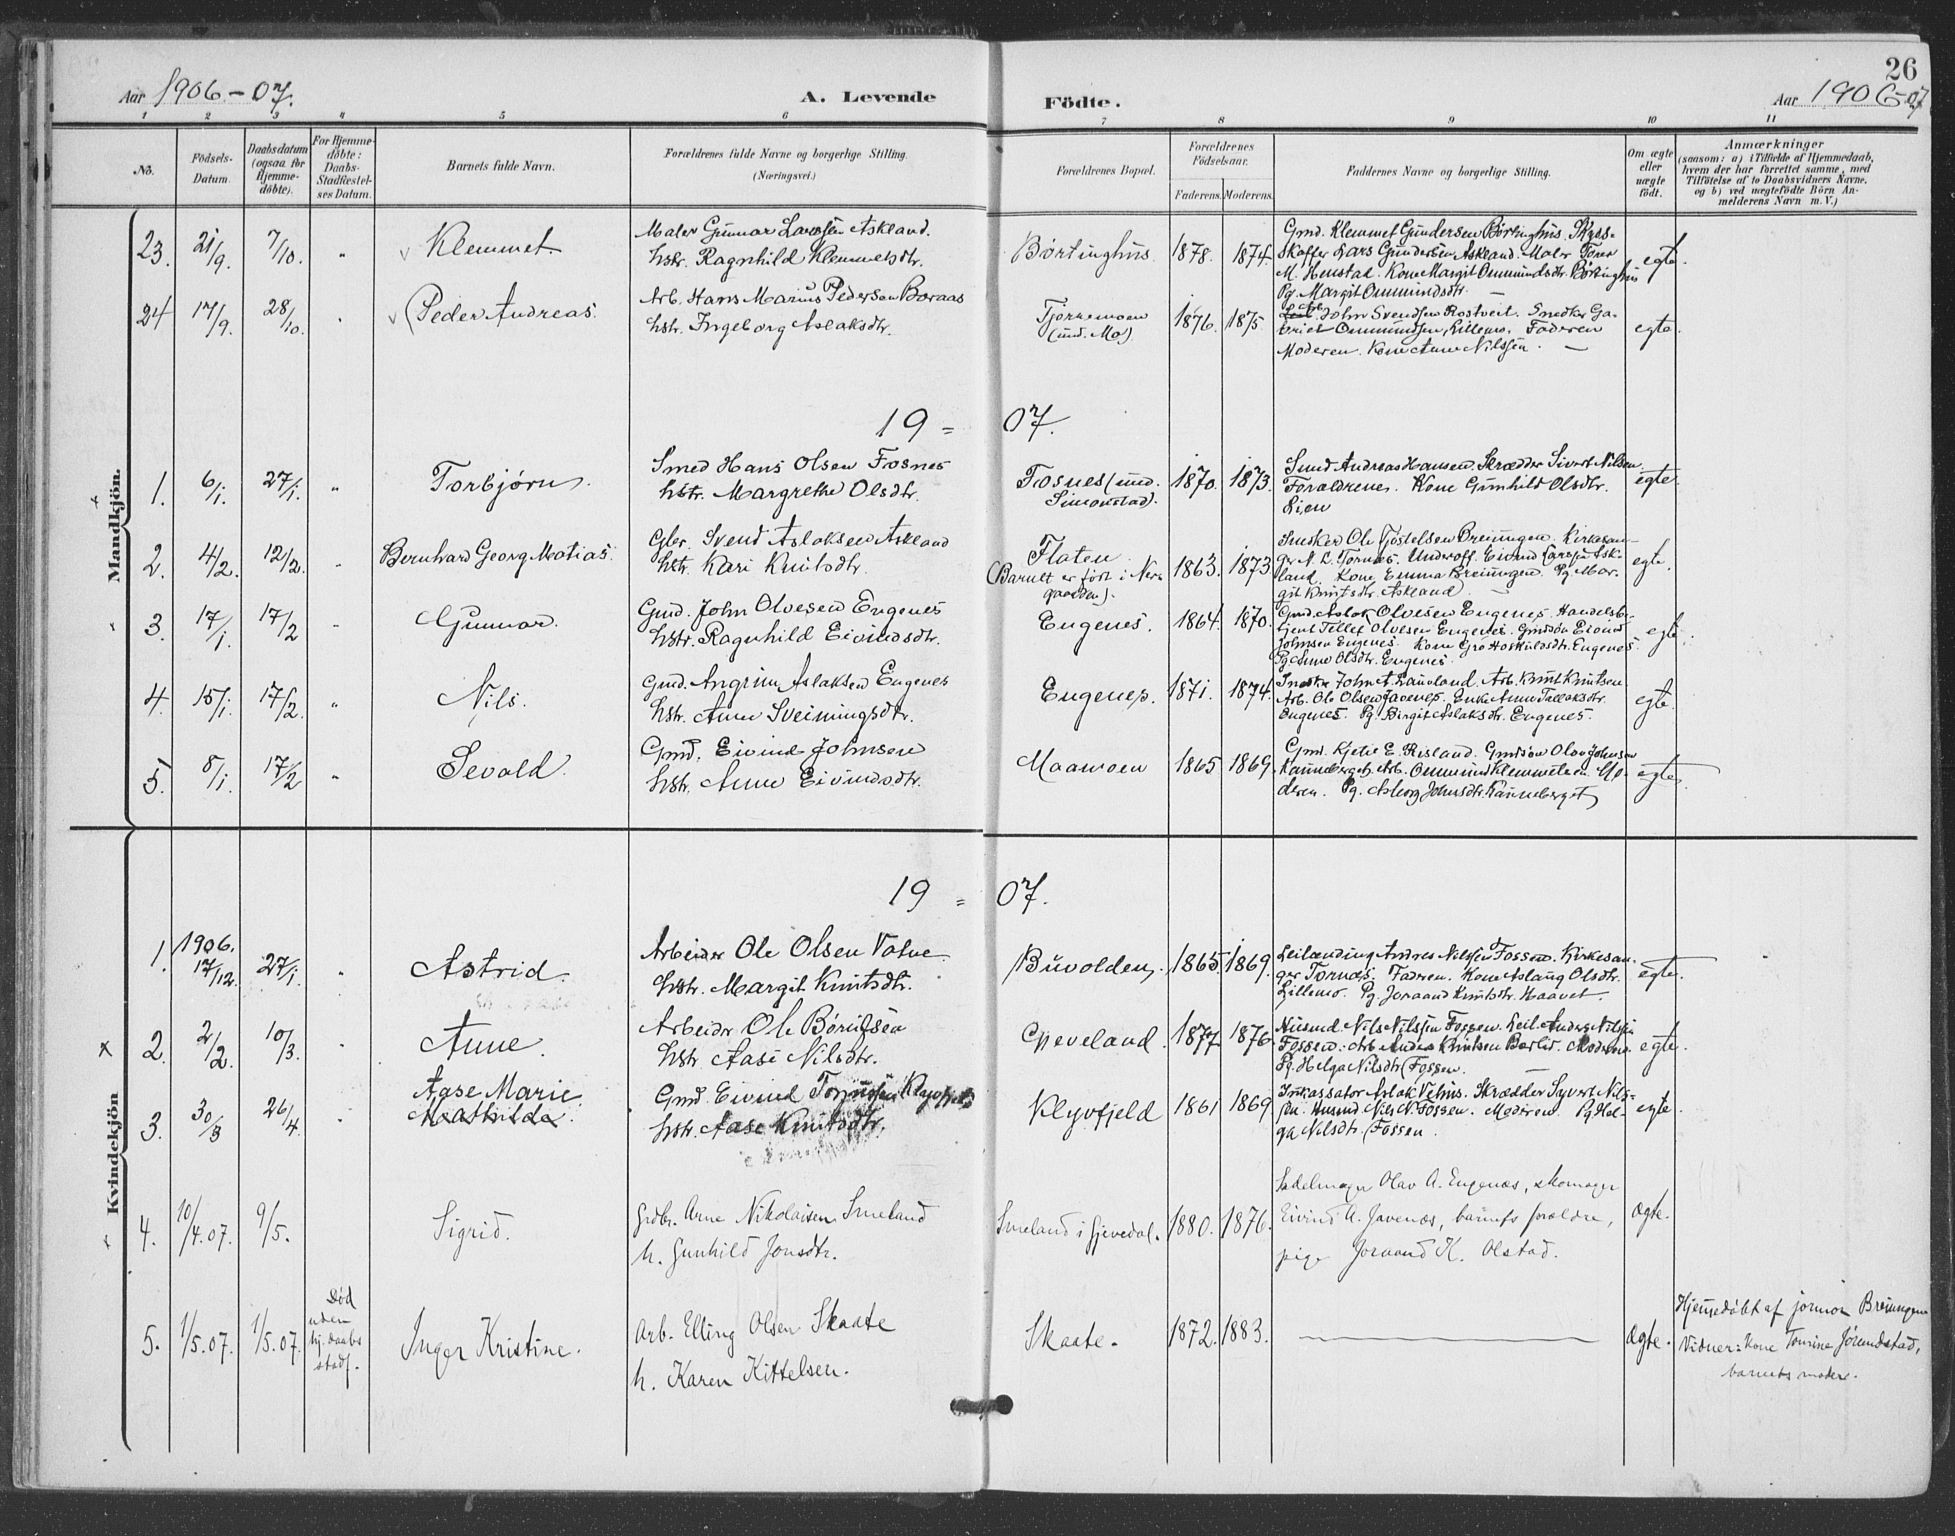 26
Aar 1906-07.
A. Levende
Födte.
Aar 1906-07
1 2 3 4 5 6 7 8 9 10 11
No.
Födsels-Datum.
Daabsdatum (ogsaa for Hjemme-döbte).
For Hjemme-döbte: Daabs-Stadfæstel-ses Datum.
Barnets fulde Navn.
Forældrenes fulde Navne og borgerlige Stilling. (Næringsvei.)
Forældrenes Bopæl.
Forældrenes Födselsaar.
Faderens. Moderens.
Faddernes Navne og borgerlige Stilling.
Om ægte eller uægte födt.
Anmærkninger
(saasom: a) i Tilfælde af Hjemmedaab,
hvem der har forrettet samme, med
Tilföielse af to Daabsvidners Navne,
og b) ved uægtefödte Börn An-
melderens Navn m. V.)
Mandkjön.
23. 21/9. 7/10. " Klemmet.
Maler Gunnar Larssen Askland.
hstr. Ragnhild Klemmetsdtr.
Börtinghus. 1878. 1874.
Gmd. Klemmet Gundersen Börtinghus. Skyds-
skaffer Lars Gundersen Askland. Maler Tores
M. Henstad. Kone Margit Ommundsdtr. Börtinghus
Pg. Margit Ommundsdtr. —
egte.
24 17/9. 28/10. " Peder Andreas.
Arb. Hans Marius Pedersen Boraas
hstr. Ingeborg Aslaksdtr.
Tjönnemoen
(und. Mo) 1876. 1875.
John Svendsen Rostveit. Snedker Ga-
briel Ommundsen, Lillemo. Faderen
Moderen. Kone Anne Nilssen. —
egte.
19 = 07.
1. 6/1. 27/1. " Torbjørn.
Smed Hans Olsen Fosnes
hstr. Margrethe Olsdtr.
Fosnes (und.
Simonstad). 1870. 1873.
Smed Andreas Hansen. Skrædder Sivert Nilsen.
Forældrenes. Kone Gunhild Olsdtr.
Lien
egte.
2. 4/2. 12/2. " Bernhard Georg Matias.
Gbr. Svend Aslaksen Askland
hstr. Kari Knutsdtr.
Flaten.
(Barnet er född i Ner-
gaarden). 1863. 1873
Snedker Ole Tjöstelsen Breiungen. Kirkesan-
ger N. L. Tornæs. Underoff. Eivind Larssen Ask-
land. Kone Emma Breiungen. Pg Mar-
git Knutsdtr. Askland
egte.
3. 17/1. 17/2 " Gunnar.
Gmd. John Olvesen Eugenes
hstr. Ragnhild Eivindsdtr.
Eugenes. 1864. 1870.
Gmd. Aslak Olvesen Eugenes. Handelsbe-
tjent Tellef Olvesen Eugenes. Gmdsön Eivind
Johnsen Eugenes. Kone Gro Hoskuldsdtr. Eugenes.
Pg. Anne Olsdtr. Eugenes.
egte.
4. 15/1. 17/2. " Nils.
Gmd. Angrim Aslaksen Eugenes
hstr. Anne Sveinungsdtr.
Eugenes. 1871. 1874.
John A Lauveland. Arb. Knut Knutsen
Arb. Ole Olsen Javenes. Enke Anne Tallaksdtr.
Eugenes. Pg. Birgit Aslaksdtr. Eugenes.
egte.
5. 8/1. 17/2 " Sevald.
Gmd. Eivind Johnsen
hstr. Anne Eivindsdtr.
Maamoen 1865 1869.
Gmd. Kjetil E. Risland. Gmdsön Olav Johnsen
Ranneberget. Arb. Ommund Klemmetsen Mo-
deren. Pg. Asborg Johnsdtr. Ranneberget
egte.
Kvindekjön
19 = 07.
1. 1906. 17/12. 27/1. " Astrid.
Arbeider Ole Olsen Vatne
hstr. Margit Knutsdtr.
Buvolden. 1865 1869.
Leilænding Andres Nilssen Fossen. Kirkesan-
ger Tornæs. Faderen. Kone Aslaug Olsdtr.
Lillemo. Pg. Joraand Knutsdtr. Haavet.
egte.
2. 2/2. 10/3. " Anne.
Arbeider Ole Börufsen
hstr. Aase Nilsdtr.
Cheveland. 1877 1876.
Husmd. Nils Nilssen Fossen. Leil. Anders Nilssen
Fossen. Arb. Anders Knutsen Barlid. Moderen.
Pg. Helga Nilsdtr. Fossen. —
egte.
3. 30/3 26/4. " Aase Marie
Mathilde.
Gmd. Eivind Torjussen Klyvfjeld
hstr. Aase Knutsdtr.
Klyvfjeld 1861 1869.
Inkassator Aslak Vehus. Skrædder Syvert Nils-
sen. Husmd Nils N. Fossen. Moderen. Pg Hel-
ga Nilsdtr. Fossen.
egte.
4. 10/4.07. 9/5. Sigrid.
Grdbr. Arne Nikolaisen Smeland
h. Gunhild Jonsdtr.
Smeland i Gjevedal. 1880. 1876.
Sadelmager Olav A. Eugenæs, skomager
Eivind A. Javenæs, barnets forældre,
pige Joraand K. Olstad.
Ægte.
5. 1/5.07. 1/5.07. Död
uden
hj.daabs
stadf.
Inger Kristine.
Arb. Elling Olsen Skaate
h. Karen Kittelsen.
Skaate. 1872. 1883.
Ægte.
Hjemmedöbt af jormor Breiungen
Vidner: kone Tomine Jörundstad,
barnets moder.